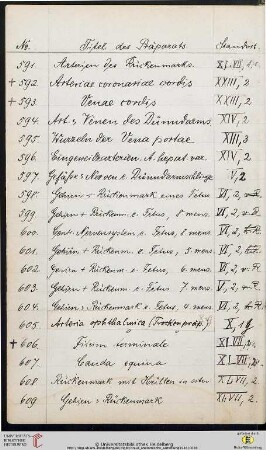 No. Titel des Präparats Standort.
591. Arterien des Rückenmarks.
+ 592. Arteriae coronariae cordis XXIII, 2
+ 593. Venae cordis XXIII, 2
594. Art. & Venen des Dünndarms XIV, 2
595. Wurzeln der Vena portae XIII, 3
596. Eingeweidearterien A. hepat. var. XIV, 2
597. Gefässe & Nerven e. Dünndarmschlinge V, 2
598. Gehirn & Rückenmark eines Fetus VI, 2
599. Gehirn & Rückenm. e. Fetus, 8 mens. VI, 2
600. Cent. Nervensystem e. Fetus, 8 mens. VI, 2
601. Gehirn & Rückenm. e. Fetus, 5 mens. VI, 2
602. Gehirn & Rückenm. e. Fetus, 6 mens. VI, 2
603. Gehirn & Rückenm. e. Fetus 7 mens. VI, 2
604. Gehirn & Rückenm. e. Fetus, 4 mens. VI, 2
605. Arteria ophthalmica (Trockenpräp.) X, 1
+ 606. Filum terminale XLVII,
607. Cauda equina XLVII,
608. Rückenmark mit Hüllen in situ XLVII, 2.
609. Gehirn & Rückenmark XLVII, 2.
© Universitätsbibliothek Heidelberg